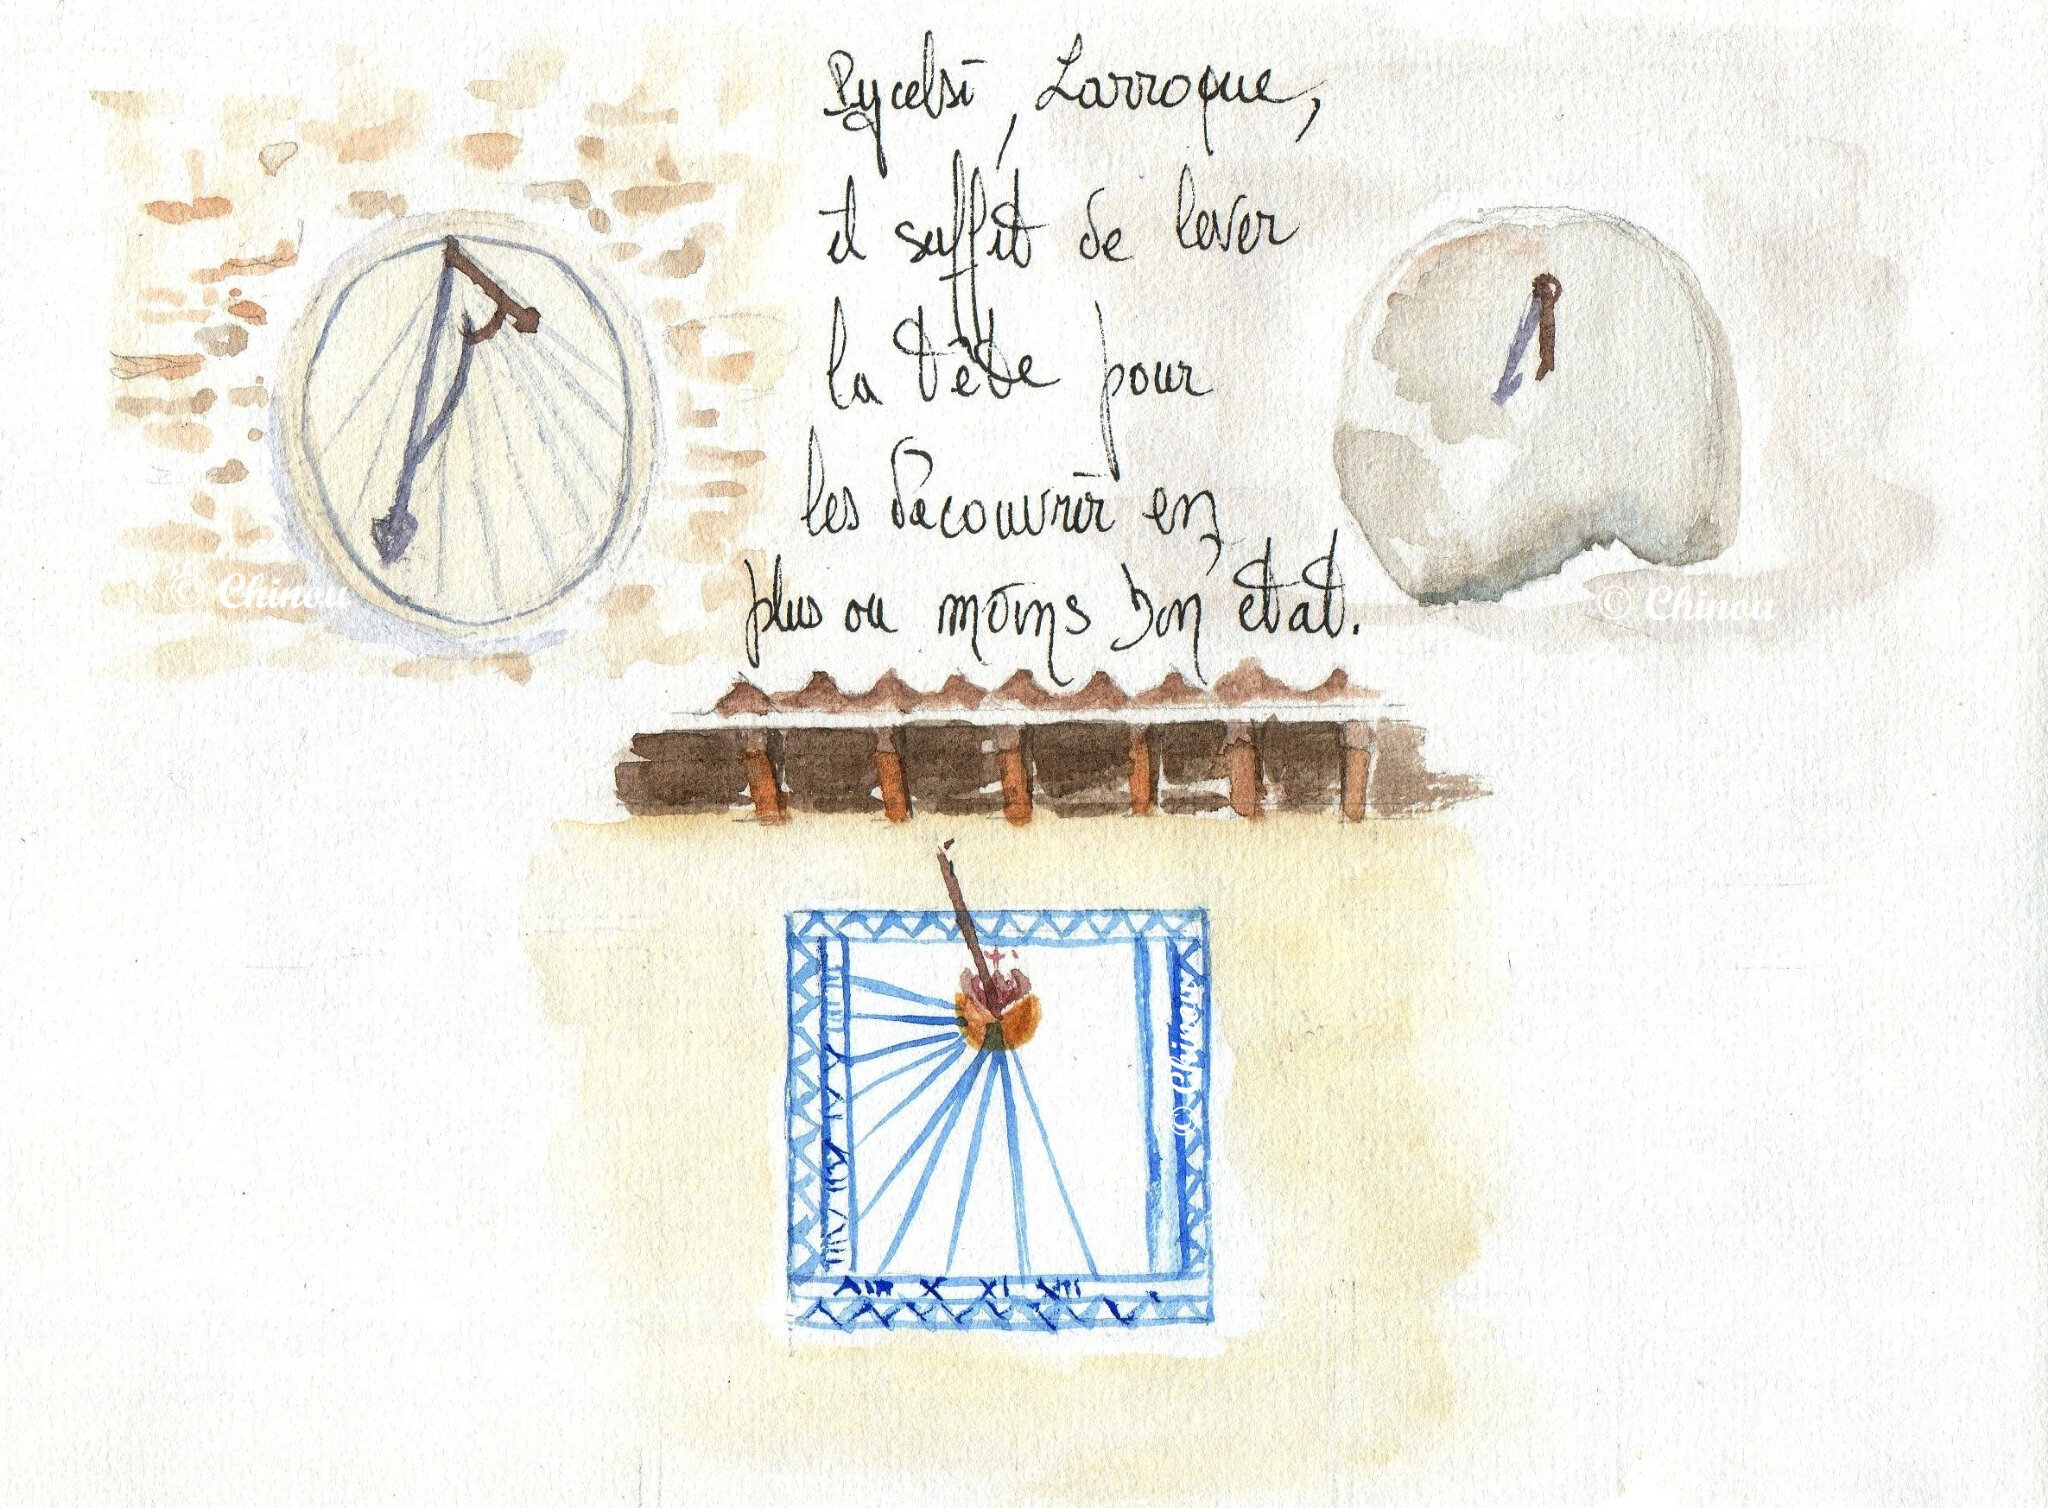 Pycelsi, Larroque,
il suffit de lever
la tête pour
les découvrir en
plus ou moins bon état.
© Chinou
© Chinou
© Chinou
X XI XII